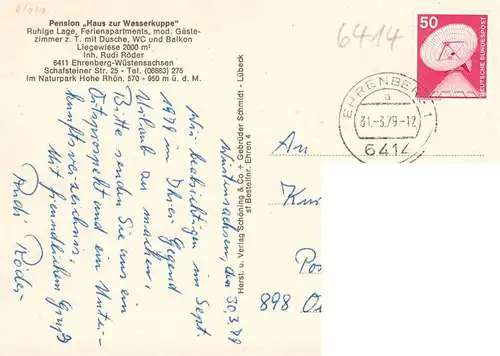 6/979
Pension „Haus zur Wasserkuppe"
Ruhige Lage, Ferienapartments, mod. Gäste-
zimmer z. T. mit Dusche, WC und Balkon
Liegewiese 2000 m².
Inh. Rudi Röder
6411 Ehrenberg-Wüstensachsen
Schafsteiner Str. 25 - Tel. (06683) 275
Im Naturpark Hohe Rhön, 570 - 950 m ü. d. M.
Wüstensachsen, den 30.3.79
Wir beabsichtigen im Sept.
1979 in Ihrer Gegend
Urlaub zu machen,
Bitte senden Sie uns ein
Ortsprospekt und ein Unter-
kunftsverzeichnis.
Mit freundlichem Gruß
Rudi Röder
Herst. u. Verlag Schöning & Co + Gebrüder Schmidt - Lübeck
st Bestellnr. Ehren 4
6414
50
DEUTSCHE BUNDESPOST
EHRENBERG 1
a
31.-3.79-12
6414
An
Kur
Pos
898 O